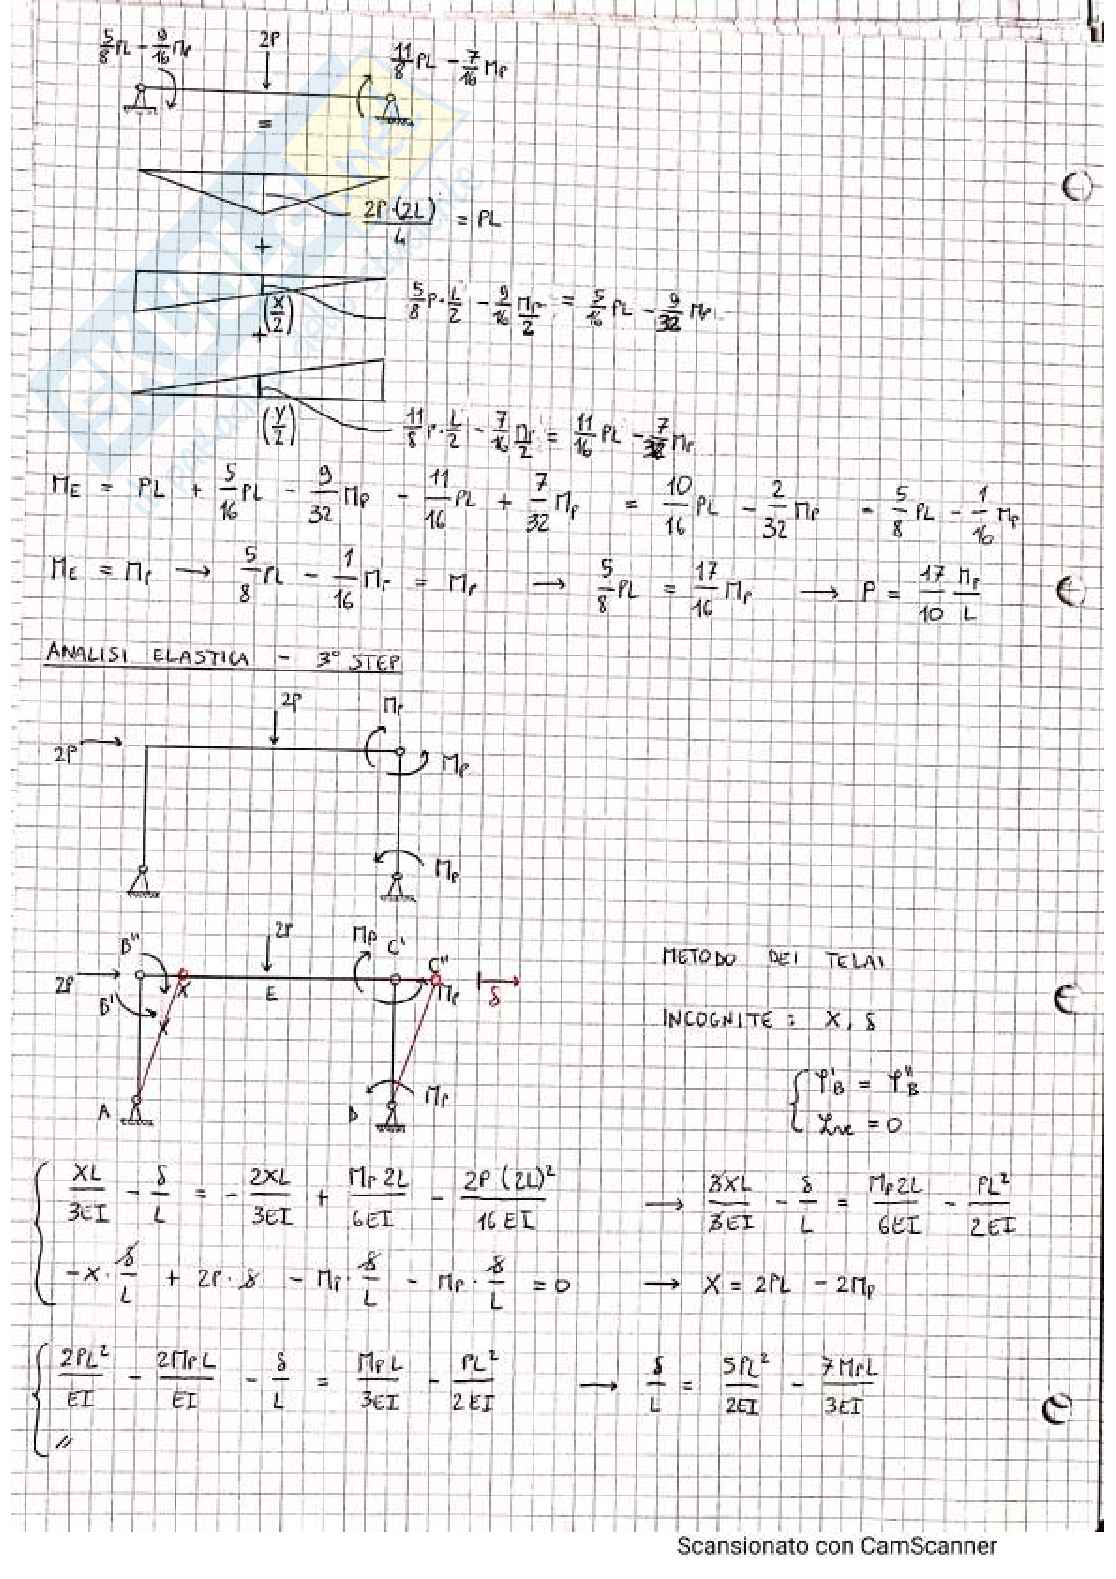 5/8 PL - 9/16 Mp
2P
11/8 PL - 7/16 Mp
=
2P·(2L)/4 = PL
+
(X/2)
5/8 P·L/2 - 9/16 Mp/2 = 5/16 PL - 9/32 Mp
+
(Y/2)
11/8 P·L/2 - 7/16 Mp/2 = 11/16 PL - 7/32 Mp
ME = PL + 5/16 PL - 9/32 Mp - 11/16 PL + 7/32 Mp = 10/16 PL - 2/32 Mp = 5/8 PL - 1/16 Mp
ME = Mp → 5/8 PL - 1/16 Mp = Mp → 5/8 PL = 17/16 Mp → P = 17/10 Mp/L
ANALISI ELASTICA - 3° STEP
2P
Mp
2P
Mp
Mp
B"
2P
Mp
C'
C"
2P
X
E
Mp
δ
B'
X
A
D
Mp
METODO DEI TELAI
INCOGNITE: X, δ
{ φ'B = φ"B
Lve = 0
{ XL/3EI - δ/L = - 2XL/3EI + Mp 2L/6EI - 2P(2L)²/16EI → 3XL/3EI - δ/L = Mp 2L/6EI - PL²/2EI
-X·δ/L + 2P·δ - Mp·δ/L - Mp·δ/L = 0 → X = 2PL - 2Mp
{ 2PL²/EI - 2MpL/EI - δ/L = MpL/3EI - PL²/2EI → δ/L = 5PL²/2EI - 7MpL/3EI
//
Scansionato con CamScanner